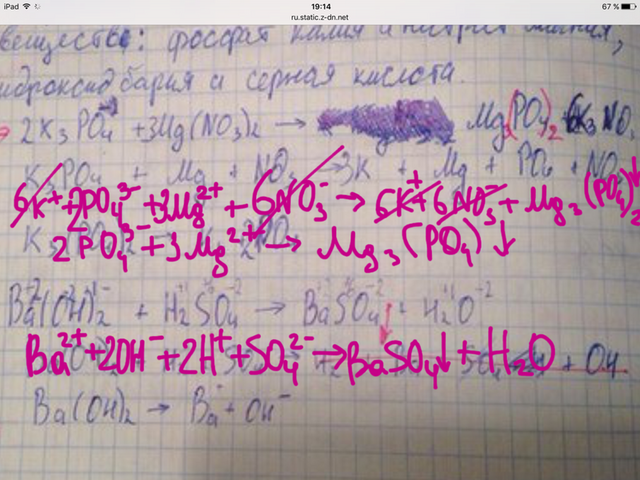 iPad 19:14 67 %
ru.static.z-dn.net
вещества: фосфат калия и нитрат магния,
гидроксид бария и серная кислота.
2K₃PO₄ + 3Mg(NO₃)₂ → Mg₃(PO₄)₂ + 6K NO₃
K₃PO₄ + Mg + NO₃ → 3K + Mg + PO₄ + NO₃
6K⁺ + 2PO₄³⁻ + 3Mg²⁺ + 6NO₃⁻ → 6K⁺ + 6NO₃⁻ + Mg₃(PO₄)₂↓
2PO₄³⁻ + 3Mg²⁺ → Mg₃(PO₄)↓
Ba(OH)₂ + H₂SO₄ → BaSO₄ + H₂O
Ba²⁺ + 2OH⁻ + 2H⁺ + SO₄²⁻ → BaSO₄↓ + H₂O + OH
Ba(OH)₂ → Ba + OH⁻